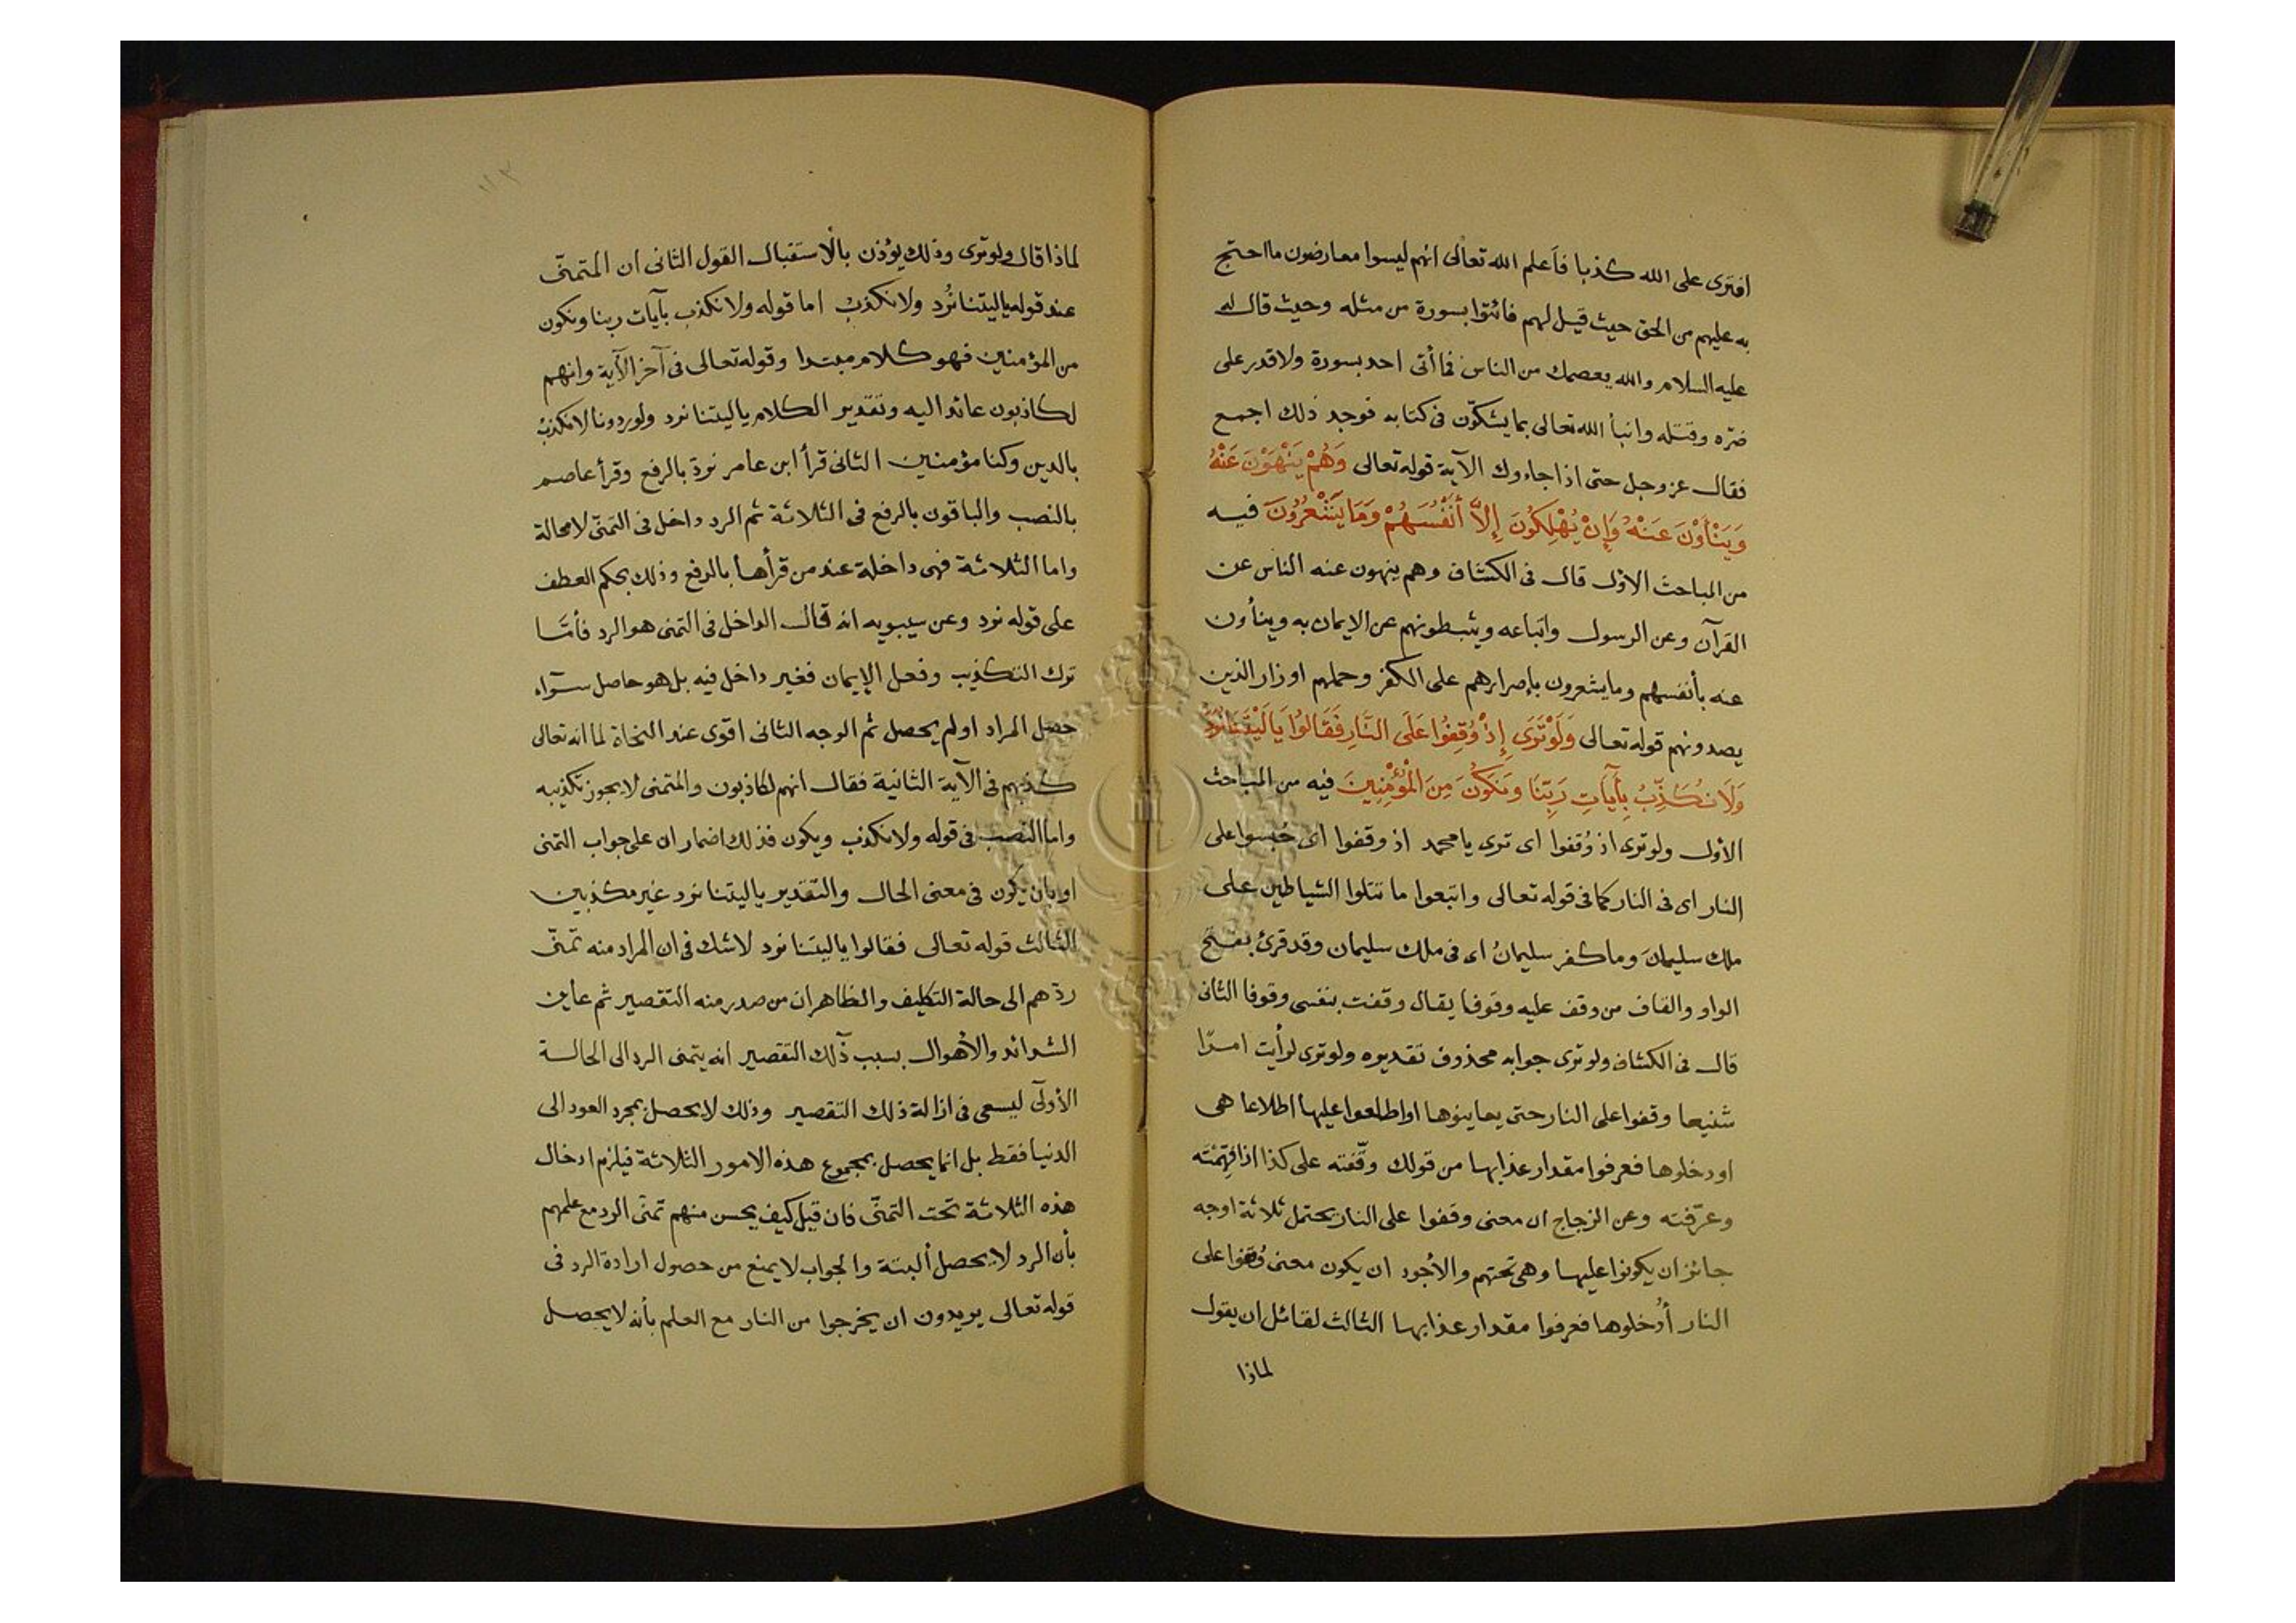 افترى على الله كذبا فأعلم الله تعالى انهم ليسوا معارضون ما احتج
به عليهم من الحق حيث قيل لهم فائتوا بسورة من مثله وحيث قال له
عليه السلام والله يعصمك من الناس فما أتى احد بسورة ولا قدر على
ضرّه وقتله وانبأ الله تعالى بما يشكّون فى كتابه فوجد ذلك اجمع
فقال عز وجل حتى اذا جاءوك الآية قوله تعالى وَهُمْ يَنْهَوْنَ عَنْهُ
وَيَنْأَوْنَ عَنْهُ وَإِنْ يُهْلِكُونَ إِلاَّ أَنْفُسَهُمْ وَمَا يَشْعُرُونَ فيه
من المباحث الاول قال فى الكشاف وهم ينهون عنه الناس عن
القرآن وعن الرسول واتباعه ويثبطونهم عن الايمان به وينأون
عنه بأنفسهم وما يشعرون بإصرارهم على الكفر وحملهم اوزار الذين
يصدونهم قوله تعالى وَلَوْ تَرَى إِذْ وُقِفُوا عَلَى النَّارِ فَقَالُوا يَا لَيْتَنَا نُرَدُّ
وَلَا نُكَذِّبُ بِآيَاتِ رَبِّنَا وَنَكُونَ مِنَ الْمُؤْمِنِينَ فيه من المباحث
الأول ولو ترى اذ وُقفوا اى ترى يا محمد اذ وقفوا اى حُبسوا على
النار اى فى النار كما فى قوله تعالى واتبعوا ما تتلوا الشياطين على
ملك سليمانَ وما كفر سليمانُ اى فى ملك سليمان وقد قرئ بفتح
الواو والقاف من وقف عليه وقوفا يقال وقفت بنفسى وقوفا الثانى
قال فى الكشاف ولو ترى جوابه محذوف تقديره ولو ترى لرأيت امرًا
شنيعا وقفوا على النار حتى يعاينوها او اطلعوا عليها اطلاعا هى
او دخلوها فعرفوا مقدار عذابها من قولك وقّفته على كذا اذا فهّمته
وعرّفته وعن الزجاج ان معنى وقفوا على النار يحتمل ثلاثة اوجه
جائز ان يكونوا عليها وهى تحتهم والأجود ان يكون معنى وُقفوا على
النار أُدخلوها فعرفوا مقدار عذابها الثالث لقائل ان يقول
لماذا
١١٣
لماذا قال ولو ترى وذلك يؤذن بالاستقبال القول الثانى ان المتمنّى
عند قوله ياليتنا نُرَد ولا نكذبُ اما قوله ولا نكذب بآيات ربنا ونكون
من المؤمنين فهو كلام مبتدا وقوله تعالى فى آخر الآية وانهم
لكاذبون عائد اليه وتقدير الكلام ياليتنا نرد ولو رددنا لا نكذبُ
بالدين وكنا مؤمنين الثانى قرأ ابن عامر نردّ بالرفع وقرأ عاصم
بالنصب والباقون بالرفع فى الثلاثة ثم الرد داخل فى التمنّى لا محالة
واما الثلاثة فهى داخلة عند من قرأها بالرفع وذلك بحكم العطف
على قوله نرد وعن سيبويه انه قال الداخل فى التمنى هو الرد فأمّا
ترك التكذيب وفعل الإيمان فغير داخل فيه بل هو حاصل سوآء
حصل المراد اولم يحصل ثم الوجه الثانى اقوى عند النحاة لما انه تعالى
كذبهم فى الآية الثانية فقال انهم لكاذبون والمتمنى لا يجوز تكذيبه
واما النصب فى قوله ولا نكذب ويكون فذلك اضمار ان على جواب التمنى
او بان يكون فى معنى الحال والتقدير ياليتنا نرد غير مكذبين
الثالث قوله تعالى فقالوا ياليتنا نرد لا شك فى ان المراد منه تمنّى
ردّهم الى حالة التكليف والظاهر ان من صدر منه التقصير ثم عاين
الشدائد والأهوال بسبب ذلك التقصير انه يتمنى الرد الى الحالة
الأولى ليسعى فى ازالة ذلك التقصير وذلك لا يحصل بمجرد العود الى
الدنيا فقط بل انما يحصل بمجموع هذه الامور الثلاثة فيلزم ادخال
هذه الثلاثة تحت التمنّى فان قيل كيف يحسن منهم تمنّى الرد مع علمهم
بأن الرد لا يحصل ألبتة والجواب لا يمنع من حصول ارادة الرد فى
قوله تعالى يريدون ان يخرجوا من النار مع العلم بأنه لا يحصل